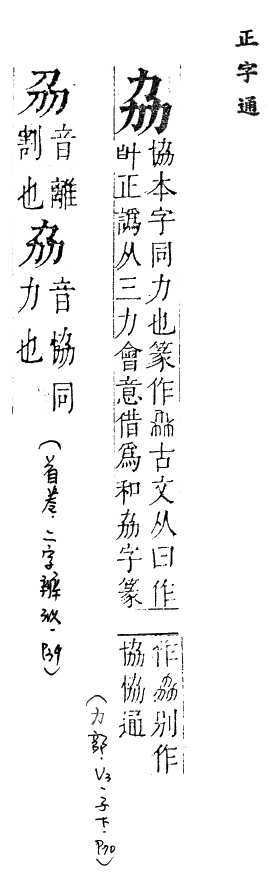 正字通
劦
協本字同力也篆作劦古文从曰作
叶正譌从三力會意借爲和劦字篆
作劦別作
協恊通
(力部·V3·子下·P30)
刕
音離
割也
劦
音協同
力也
(首卷·二字辨似·P39)